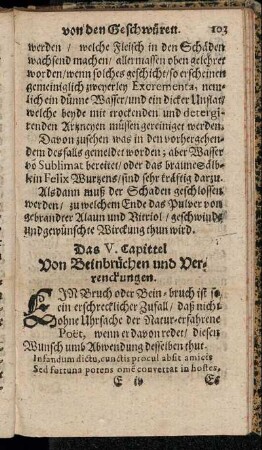 von den Geschwüren. 103
werden / welche Fleisch in den Schäden
wachsend machen / aller massen oben gelehret
worden / wenn solches geschicht / so erscheinen
gemeiniglich zweyerley Excrementa, nem-
lich ein dünne Wasser / und ein dicker Unflat /
welche beyde mit trockenden und detergi-
renden Artzneyen müssen gereiniget werden.
Davon zusehen was in den vorhergehen-
dem desfalls gemeldet worden; aber Wasser
võ Sublimat bereitet / oder das braune Sälb-
lein Felix Wurzens / sind sehr kräftig darzu.
Alsdann muß der Schaden geschlossen
werden / zu welchem Ende das Pulver von
gebrandter Alaun und Vitriol / geschwinde
und gewünschte Wirckung thun wird.
Das V. Capittel
Von Beinbrüchen und Ver-
renckungen.
EIN Bruch oder Bein-bruch ist so
ein erschrecklicher Zufall / daß nicht
ohne Uhrsache der Natur-erfahrene
Poët, wenn er davon redet / diesen
Wunsch umb Abwendung desselben thut.
Infandum dictu, cunctis procul absit amicis
Sed fortuna potens omẽ convertat in hostes,
E iv Es